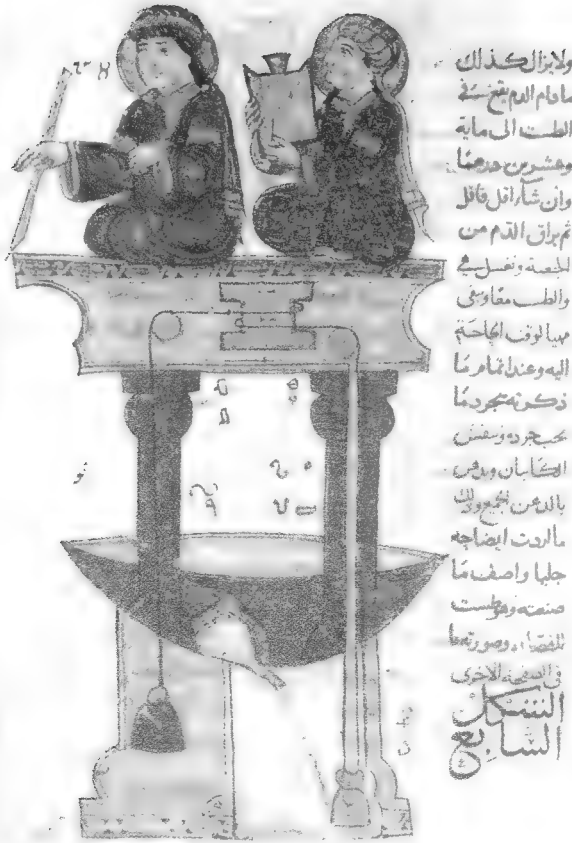 ولا يزال كذلك
مادام الدم يقع في
الطست الى ماية
وعشرين درهما
وان شاء اقل فاقل
ثم يراق الدم من
ويغسل في
والطست
مهيا لوقت الحاجة
اليه وعند اتمام ما
ذكرته يجرد ما
يجب جرده وينقش
الكاتبان ويدهن
بالدهن الجميع وذلك
ما اردت ايضاحه
جليا واصف ما
صنعته وهو طست
للفصاد وصورته
في الصفحة الاخرى
الشكل
السابع